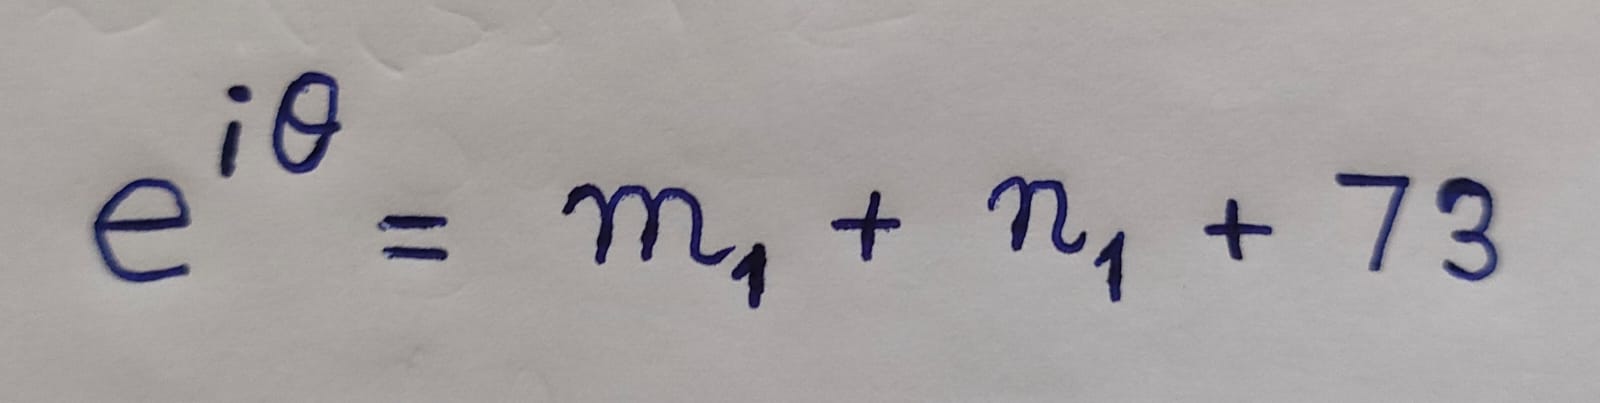 e^{iθ} = m₁ + n₁ + 73